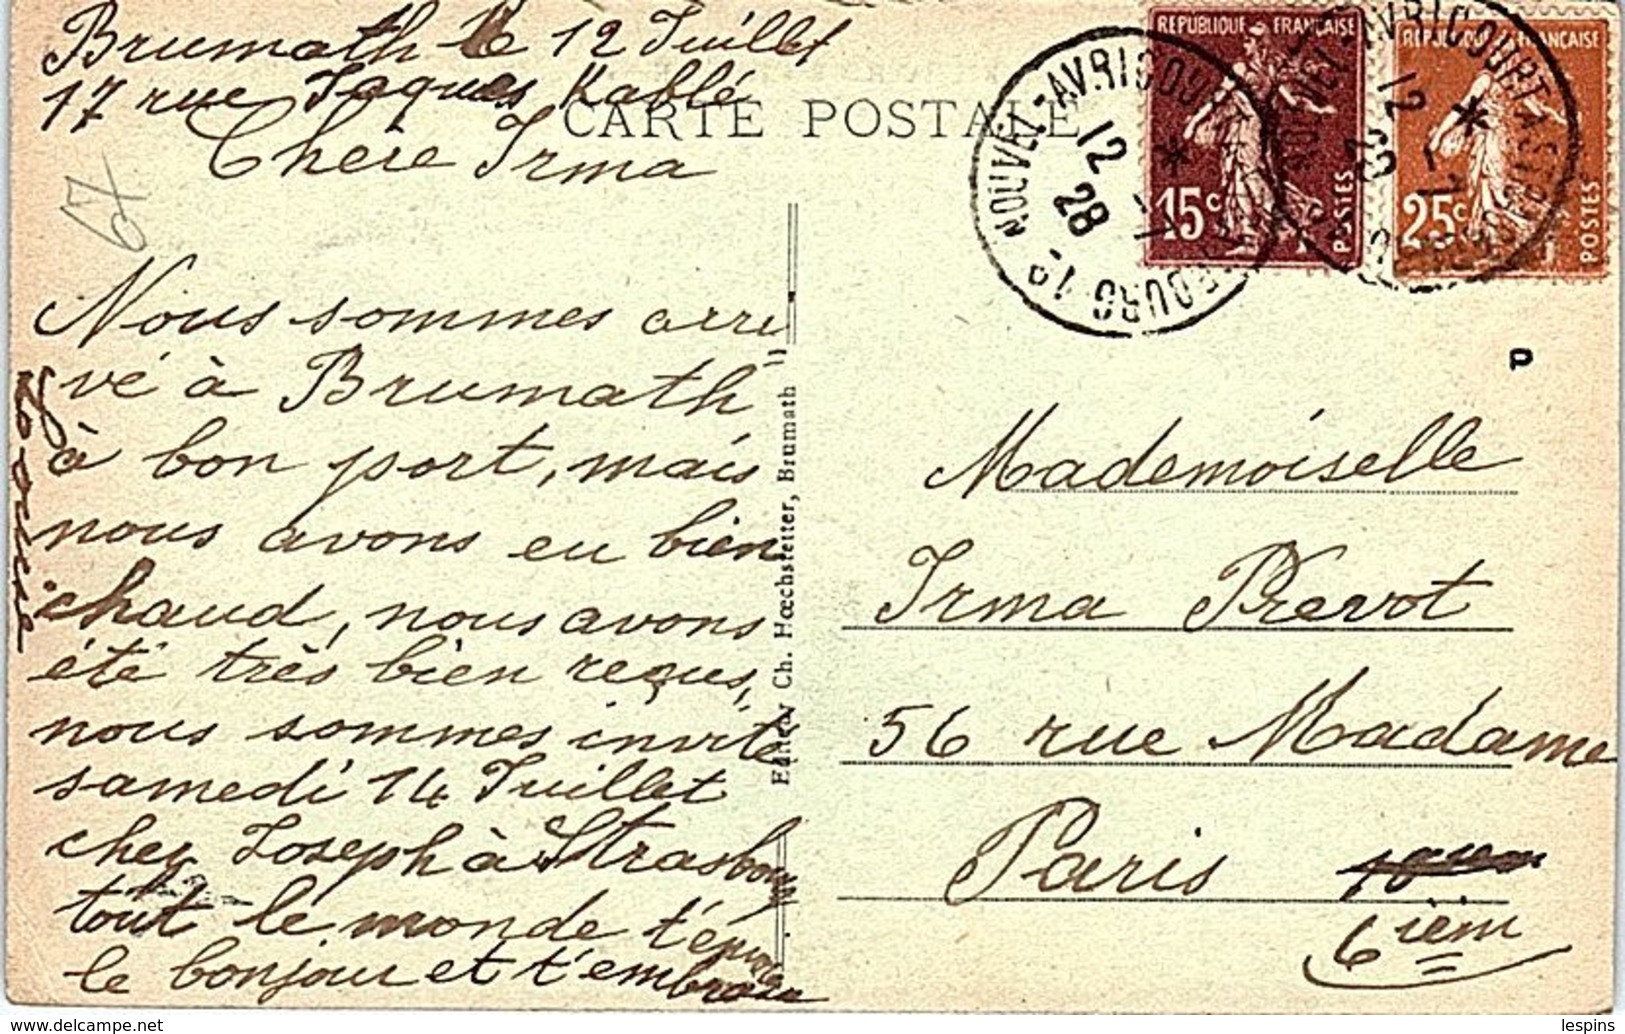 Brumath le 12 Juillet
17 rue Jaques Kablé
CARTE POSTALE
Chère Irma
67
Nous sommes arri
vé à Brumath
à bon port, mais
nous avons eu bien
chaud, nous avons
été très bien reçus,
nous sommes invité
samedi 14 Juillet
chez Joseph à Strasbourg
tout le monde t'envoie
le bonjour et t'embrasse
Edit. Ch. Hœchstetter, Brumath
REPUBLIQUE FRANÇAISE
15c
POSTES
REPUBLIQUE FRANÇAISE
25c
POSTES
NOUVEL-AVRICOURT A STRASBOURG 1°
12 -7 28
NOUVEL-AVRICOURT A STRASBOURG
12 -7 28
P
Mademoiselle
Irma Prevot
56 rue Madame
Paris
6 ièm
lespins